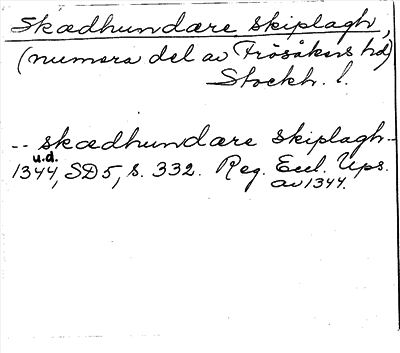 Skædhundære skiplagh,
(numera del av Frösåkers hd)
Stockh. l.
-- skædhundære skiplagh --
u.d.
1344, SD5, s. 332. Reg. Eccl. Ups.
av 1344.